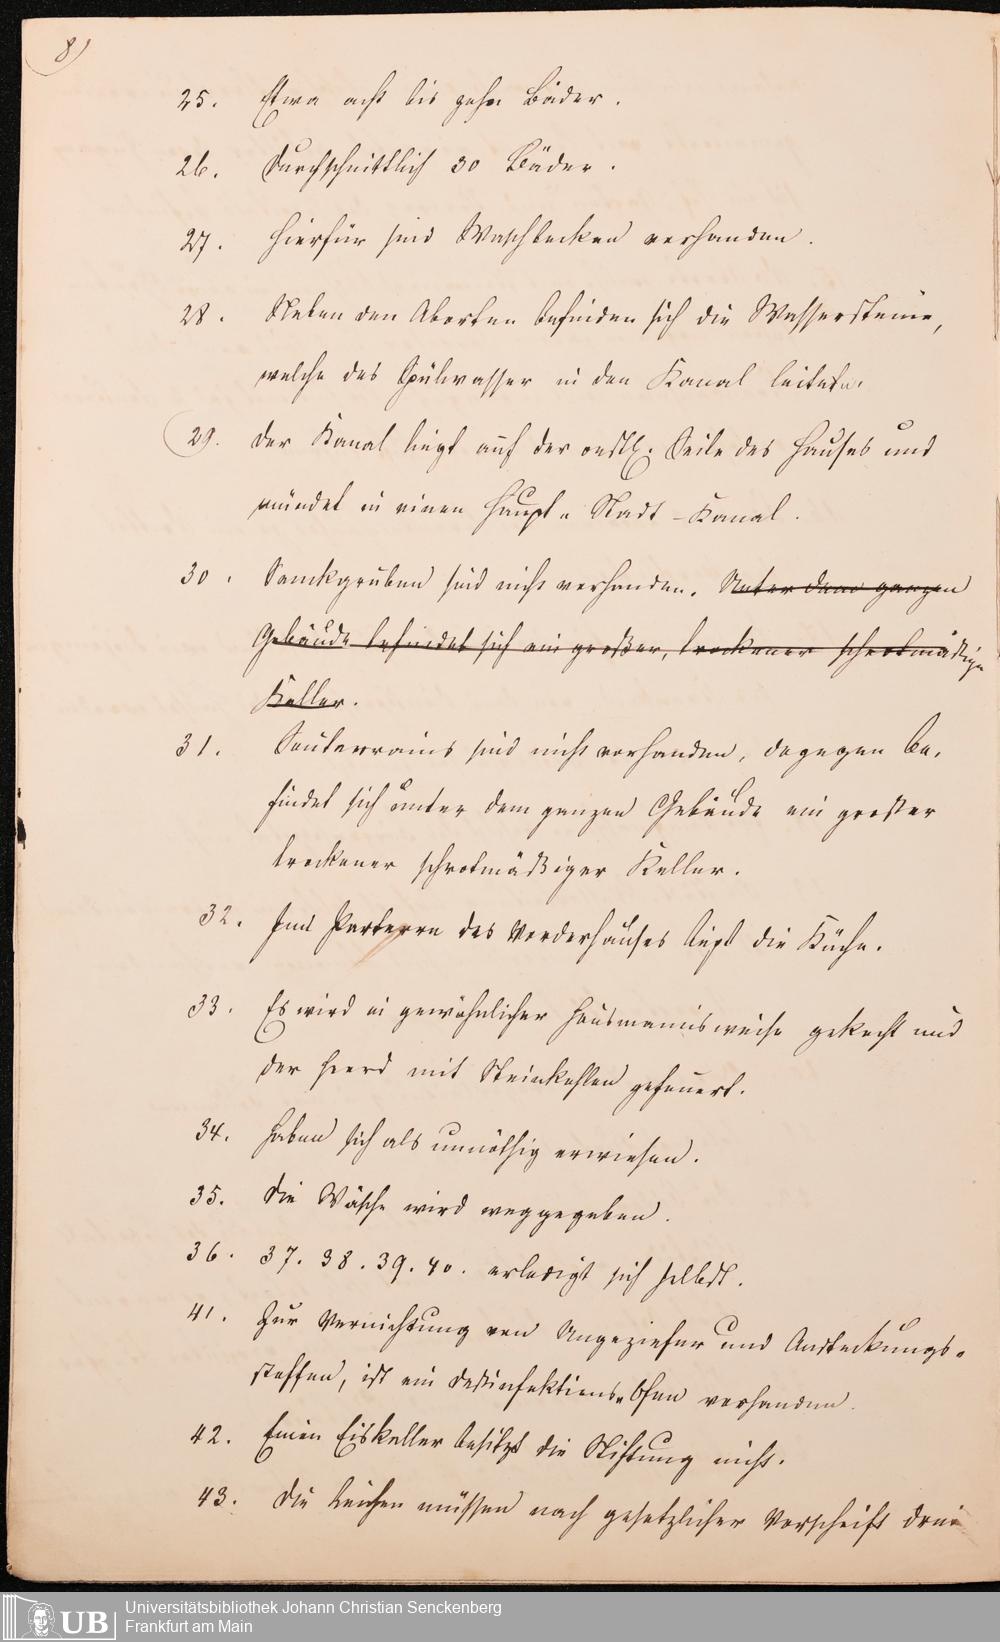 8)
25. Etwa acht bis zehn Bäder.
26. Durchschnittlich 30 Bäder.
27. Hierfür sind Waschbecken vorhanden.
28. Neben den Aborten befinden sich die Wassersteine,
welche das Spülwasser in den Kanal leiten.
29. Der Kanal liegt auf der östl. Seite des Hauses und
mündet in einen Haupt-Stadt-Kanal.
30. Senkgruben sind nicht vorhanden. Unter dem ganzen
Gebäude befindet sich ein großer, trockener schrotmäßiger
Keller.
31. Souterrains sind nicht vorhanden, dagegen be-
findet sich unter dem ganzen Gebäude ein großer
trockener schrotmäßiger Keller.
32. Im Parterre des Vorderhauses liegt die Küche.
33. Es wird in gewöhnlicher Hausmannsweise gekocht und
der Heerd mit Steinkohlen gefeuert.
34. Haben sich als unnöthig erwiesen.
35. Die Wäsche wird weggegeben.
36. 37. 38. 39. 40. erledigt sich selbst.
41. Zur Vernichtung von Ungeziefer und Ansteckungs-
stoffen, ist ein Desinfektions-Ofen vorhanden.
42. Einen Eiskeller besitzt die Stiftung nicht.
43. Die Leichen müssen nach gesetzlicher Vorschrift drei
UB Universitätsbibliothek Johann Christian Senckenberg
Frankfurt am Main